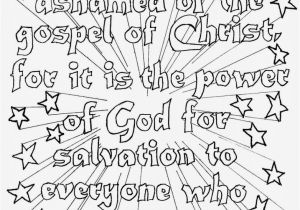 ashamed of the
gospel of Christ,
for it is the power
of God for
salvation to
everyone who